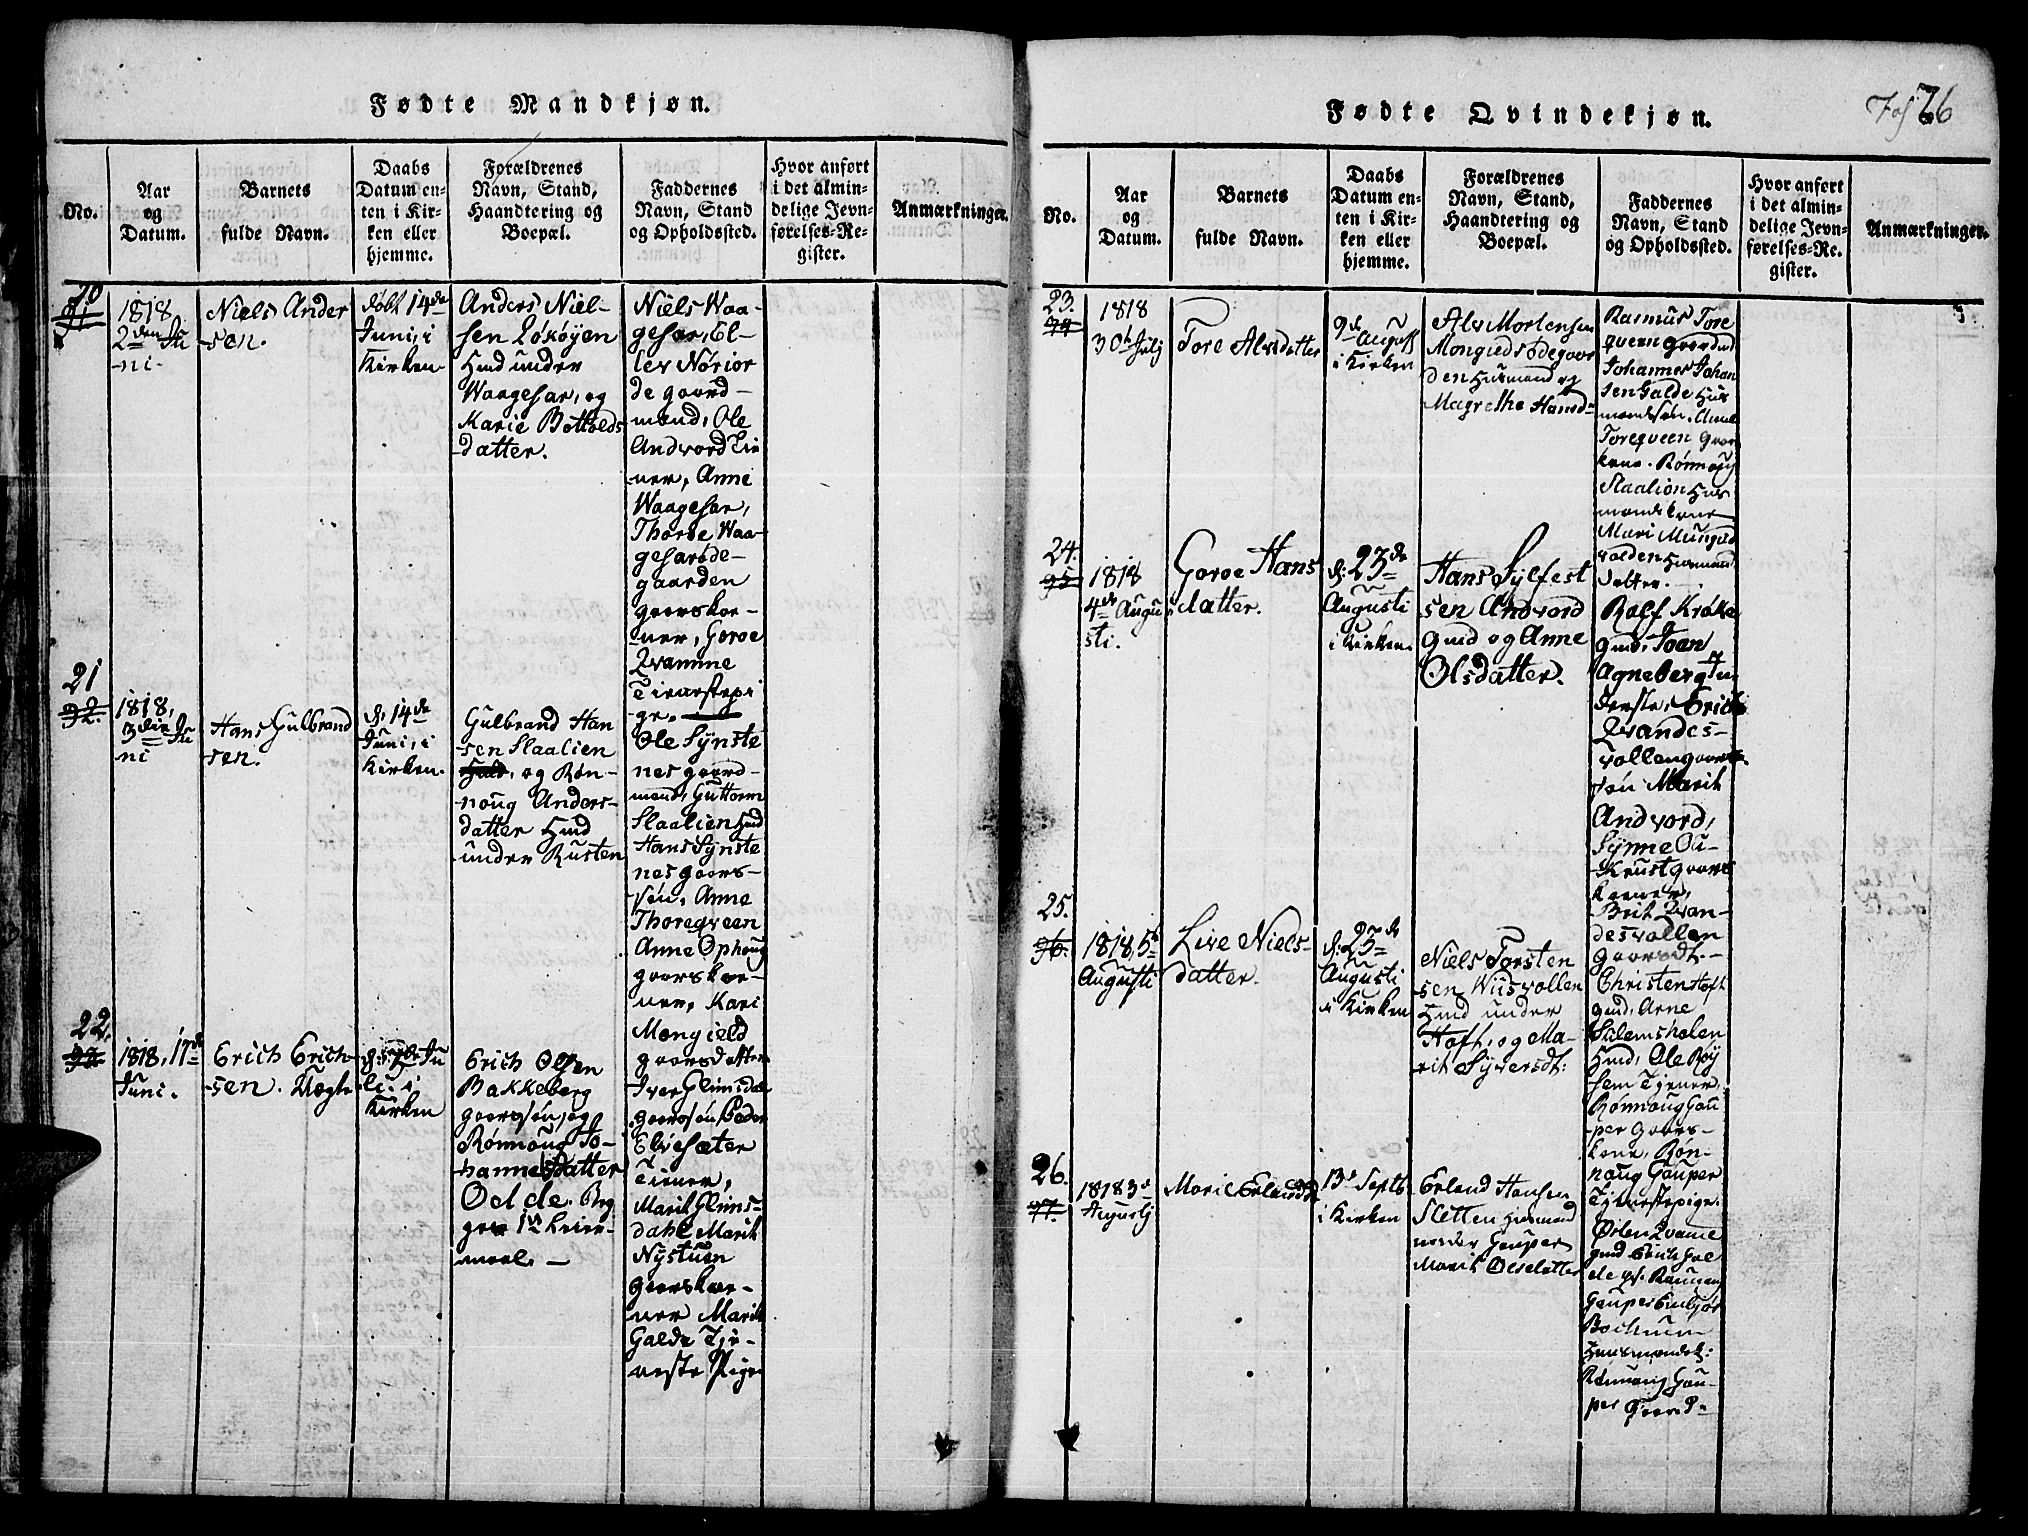 Fødte Mandkjøn.
No.
Aar
og
Datum.
Barnets
fulde Navn.
Daabs
Datum en-
ten i Kir-
ken eller
hjemme.
Forældrenes
Navn, Stand,
Haandtering og
Boepæl.
Faddernes
Navn, Stand
og Opholdssted.
Hvor anført
i det almin-
delige Jevn-
førelses-Re-
gister.
Anmærkninger.
20
1818.
2den Ju
ni.
Niels Ander
sen.
døbt 14de
Juni, i
Kirken
Anders Niel-
sen Løkøyen
Hmd under
Waagesar, og
Marie Bottolds
datter.
Niels Waa-
gesar, El-
lev Nørjor
de gaard-
mænd, Ole
Andvord Tie
ner, Anne
Waagesar,
Thoroe Waa-
gesarøde-
gaarden
gaarskor-
ner, Goroe
Qvamme
Tienestepi
ge.
21
1818,
3die Ju
ni
Hans Gulbrand
sen.
d. 14de
Juni, i
Kirken.
Gulbrand Han
sen Slaalien
og Røn-
noug Anders-
datter Hmd
under Rusten
Ole Synste
nes gaard-
mand, Guttorm
Slaalien Hmd
Hans Synste
nes gaars-
søn, Anne
Thoregveen
Anne Ophoug
gaarskoe-
ner, Kari
Mongield
gaarsdatter
22.
1818, 17de
Juni.
Erich Erich-
sen. Uægte
d. 5de Ju
li i
Kirken
Erich Olsen
Bakkeberg
gaarssøn, og
Rønnoug Jo-
hannesdatter
Odde. Beg
ges 1ste Leier-
maal. —
Iver Glimsdal
gaarssøn, Peder
Elvesæter
Tiener,
Marit Glims-
dahl, Marit
Nystuen
gaarskoe-
ner Marit
Galde Tje-
neste Pige
Fødte Qvindekjøn.
76
No.
Aar
og
Datum.
Barnets
fulde Navn.
Daabs
Datum en-
ten i Kir-
ken eller
hjemme.
Forældrenes
Navn, Stand,
Haandtering og
Boepæl.
Faddernes
Navn, Stand
og Opholdssted.
Hvor anført
i det almin-
delige Jevn-
førelses-Re-
gister.
Anmærkninger.
23.
1818
30te Julj
Tore Alvsdatter
9de August
i Kirken
Alv Mortensen
Mongiedsødegaar
den Husmand og
Magrethe Hansd-
Rasmus Tore
qveen Gaardmd
Johannes Johan
sen Galde Hus
mandssøn. Anne
Toreqveen Gaar
kone. Rønnoug
Slaalien Hus
mands kone
Mari Mungield
volden Husmand
datter.
24.
1818
4de Augu
sti.
Goroe Hans
datter.
d. 23de
Augusti
i Kirken.
Hans Sylfest
sen Andvord
Gmd og Anne
Olsdatter.
Rolf Kroke
gmd, Joen
Agneberg In
derste, Erich
Qvandes-
vollen gaars
søn Marit
Andvord,
Synne Ou-
Krust gaars
koener,
Brit Qvan-
desvollen
gaarsdt.
25.
1818, 5te
Augusti
Live Niels-
datter.
d. 23de
Augusti
i Kirken
Niels Torsten
sen Wiisvollen
Hmd under
Hoft, og Ma-
rit Syversdt:
Christen Hoft
gmd, Arne
Stilemsholen
Hmd, Ole Røy
sem Tjener,
Rønnoug Gau
per Gaars-
kone, Røn-
naug Gauper
Tjenestepige.
26.
1818 3de
Augustj
Marie Erlandsd
13de Septb
i Kirken
Erland Hansen
Sletten Husmand
under Gauper
Marit Olsdatter
Østen Qvame
gmd Erich Gal
de gs. Rannau
Gauper Embjør
Bochum
Husmandsk:
Rønnaug Gau-
per Gaard-